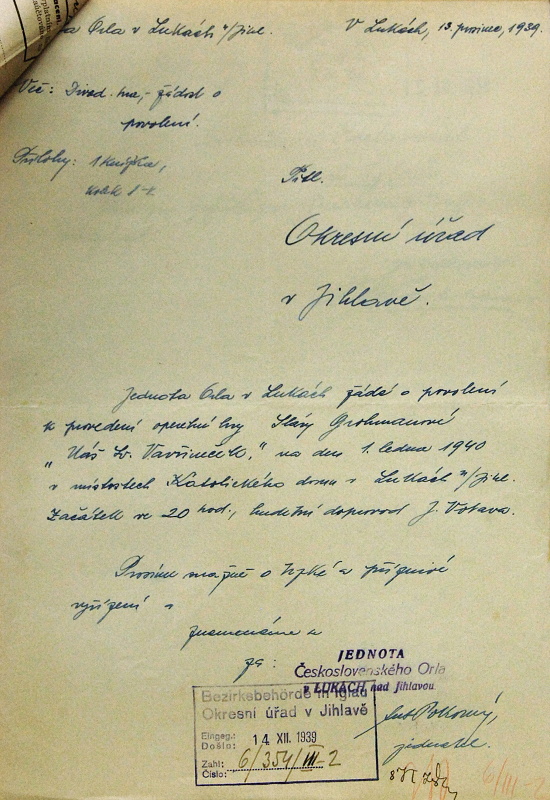 Orla v Lukách n/Jihl.
V Lukách, 13. prosince, 1939.
Věc: Divad. hra, - žádost o
povolení.
Přílohy: 1 knížka,
kolek 8 K.
Titl.
Okresní úřad
v Jihlavě.
Jednota Orla v Lukách žádá o povolení
k provedení operetní hry Slávy Grohmanové
"Náš sv. Vavřineček," na den 1. ledna 1940
v místostech Katolického domu v Lukách n/Jihl.
Začátek ve 20 hod., hudební doprovod J. Votava.
Prosíme snažně o brzké a příznivé
vyřízení a
znamenáme se
za:
JEDNOTA
Československého Orla
v LUKÁCH nad Jihlavou
Ant. Pokorný,
jednatel.
Bezirksbehörde in Iglau
Okresní úřad v Jihlavě
Eingeg.:
Došlo: 14 XII. 1939
Zahl:
Číslo: 6/354/III-2
6/III-2